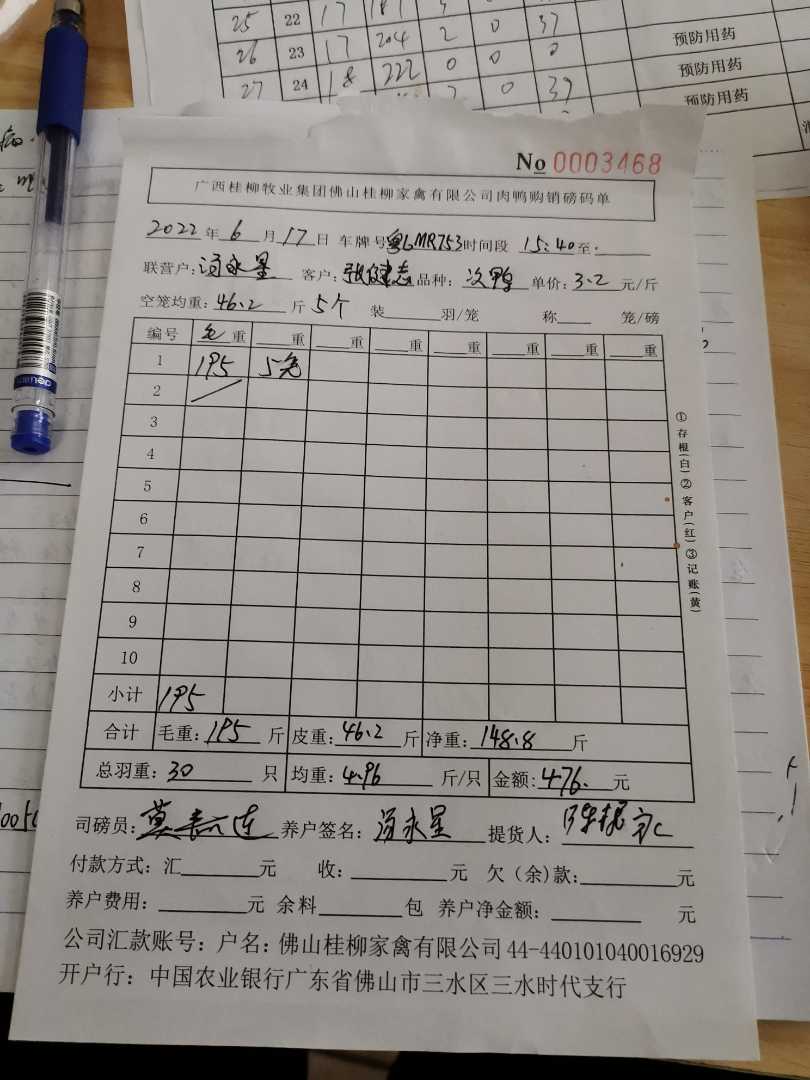 25 22 17 187
26 23 17 204 2 0 37 预防用药
27 24 18 222 0 0 0 预防用药
2 0 37 预防用药
No 0003468
广西桂柳牧业集团佛山桂柳家禽有限公司肉鸭购销磅码单
2022年6月17日 车牌号粤LMR753时间段 15:40至
联营户:冯永星 客户:张健志 品种:次鸭 单价:3.2元/斤
空笼均重:46.2斤 5个 装 羽/笼 称 笼/磅
编号 毛重 重 重 重 重 重 重 重
1 195 5笼
2
3
4
5
6
7
8
9
10
小计 195
合计 毛重:195斤 皮重:46.2斤 净重:148.8斤
总羽重:30只 均重:4.96斤/只 金额:476.元
司磅员: 养户签名:冯永星 提货人:
付款方式:汇 元 收: 元 欠(余)款: 元
养户费用: 元 余料 包 养户净金额: 元
公司汇款账号:户名:佛山桂柳家禽有限公司44-440101040016929
开户行:中国农业银行广东省佛山市三水区三水时代支行
①存根(白)②客户(红)③记账(黄)